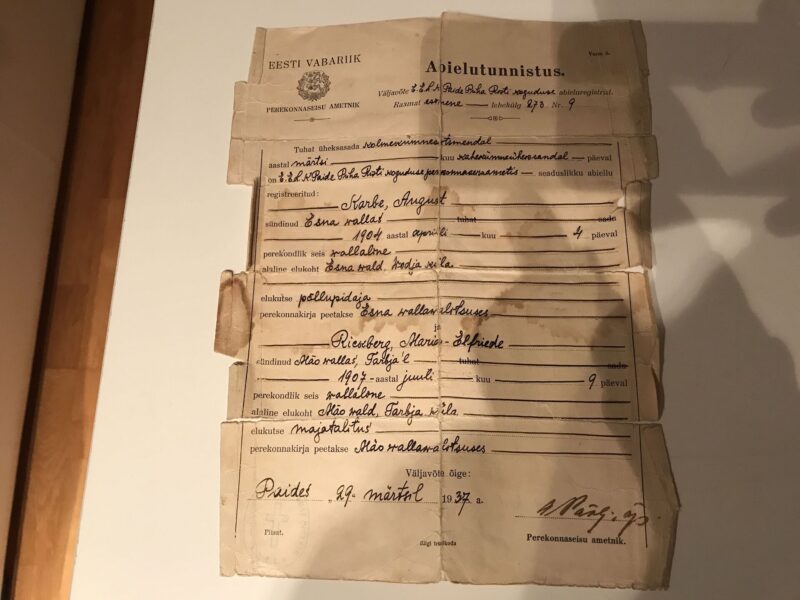 Vorm 3.
EESTI VABARIIK
PEREKONNASEISU AMETNIK
Abielutunnistus.
Väljavõte E.E.L.K. Paide Püha Risti koguduse abieluregistrist.
Raamat esimene lehekülg 273 Nr. 9
Tuhat üheksasada kolmekümne
aastal märtsi kuu kahekümne päeval
on E.E.L.K. Paide Püha Risti koguduse perekonnaseisuametis seaduslikku abiellu
registreeritud:
Karbe, August
sündinud Esna vallas tuhat sada
1904 aastal aprilli kuu 4 päeval
perekondlik seis vallaline
alaline elukoht Esna vald, küla
elukutse põllupidaja
perekonnakirja peetakse Esna vallavalitsuses
ja
Riesberg, Maria-Elfriede
sündinud Mäo vallas, Tarbja'l tuhat sada
1907 aastal juuli kuu 9 päeval
perekondlik seis vallaline
alaline elukoht Mäo vald, Tarbja küla
elukutse majatalitus
perekonnakirja peetakse Mäo vallavalitsuses
Väljavõte õige:
Paides "29" märtsil 1937. a.
Pitsat.
Perekonnaseisu ametnik.
Riigi trükikoda